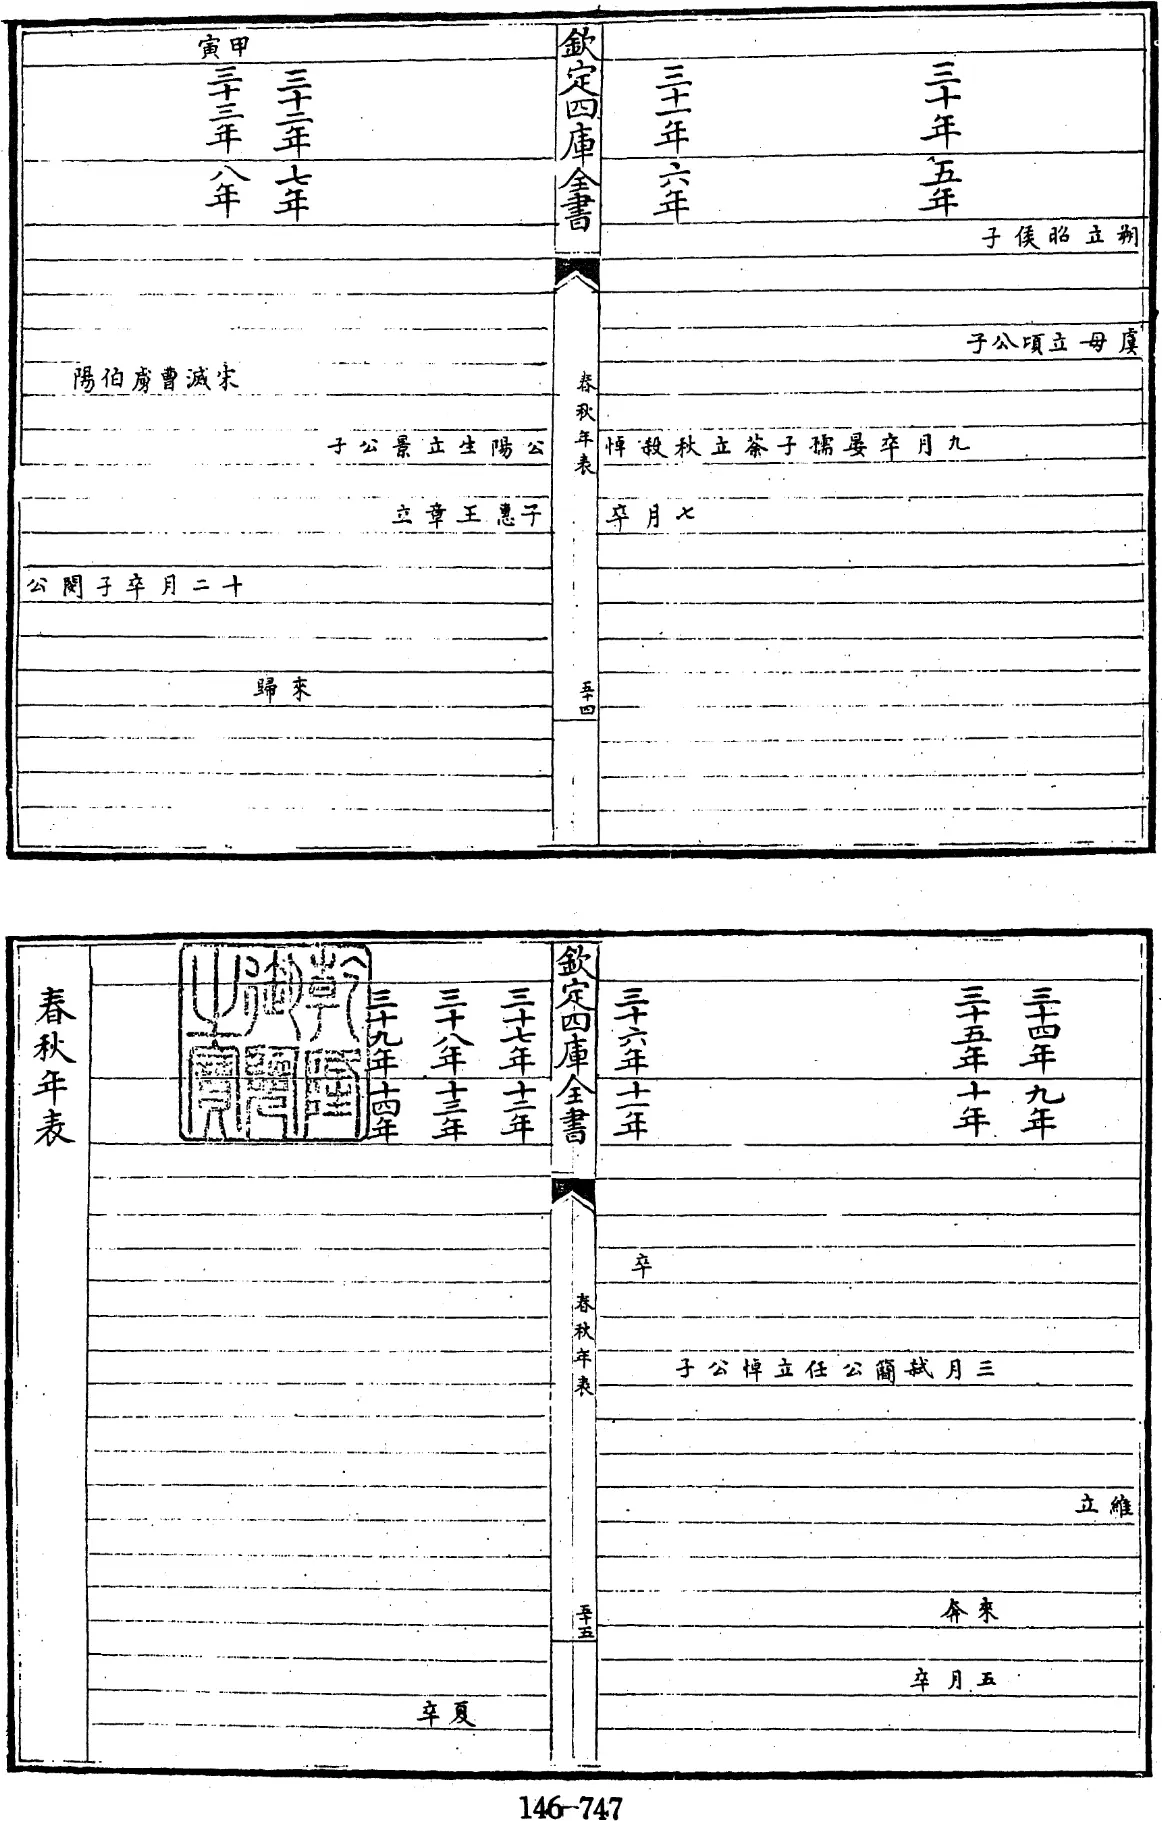 三十年 五年
朔立昭侯子
虞母立頃公子
九月卒晏孺子荼立秋殺悼
七月卒
三十一年 六年
欽定四庫全書
春秋年表
五十四
三十二年 七年
公陽生立景公子
子惠王章立
甲寅
三十三年 八年
宋滅曹虜伯陽
十二月卒子閔公
來歸
三十四年 九年
維立
三十五年 十年
三月弒簡公任立悼公子
來奔
五月卒
三十六年 十一年
卒
欽定四庫全書
春秋年表
五十五
三十七年 十二年
三十八年 十三年
夏卒
三十九年 十四年
乾隆御覽之寶
春秋年表
146-747